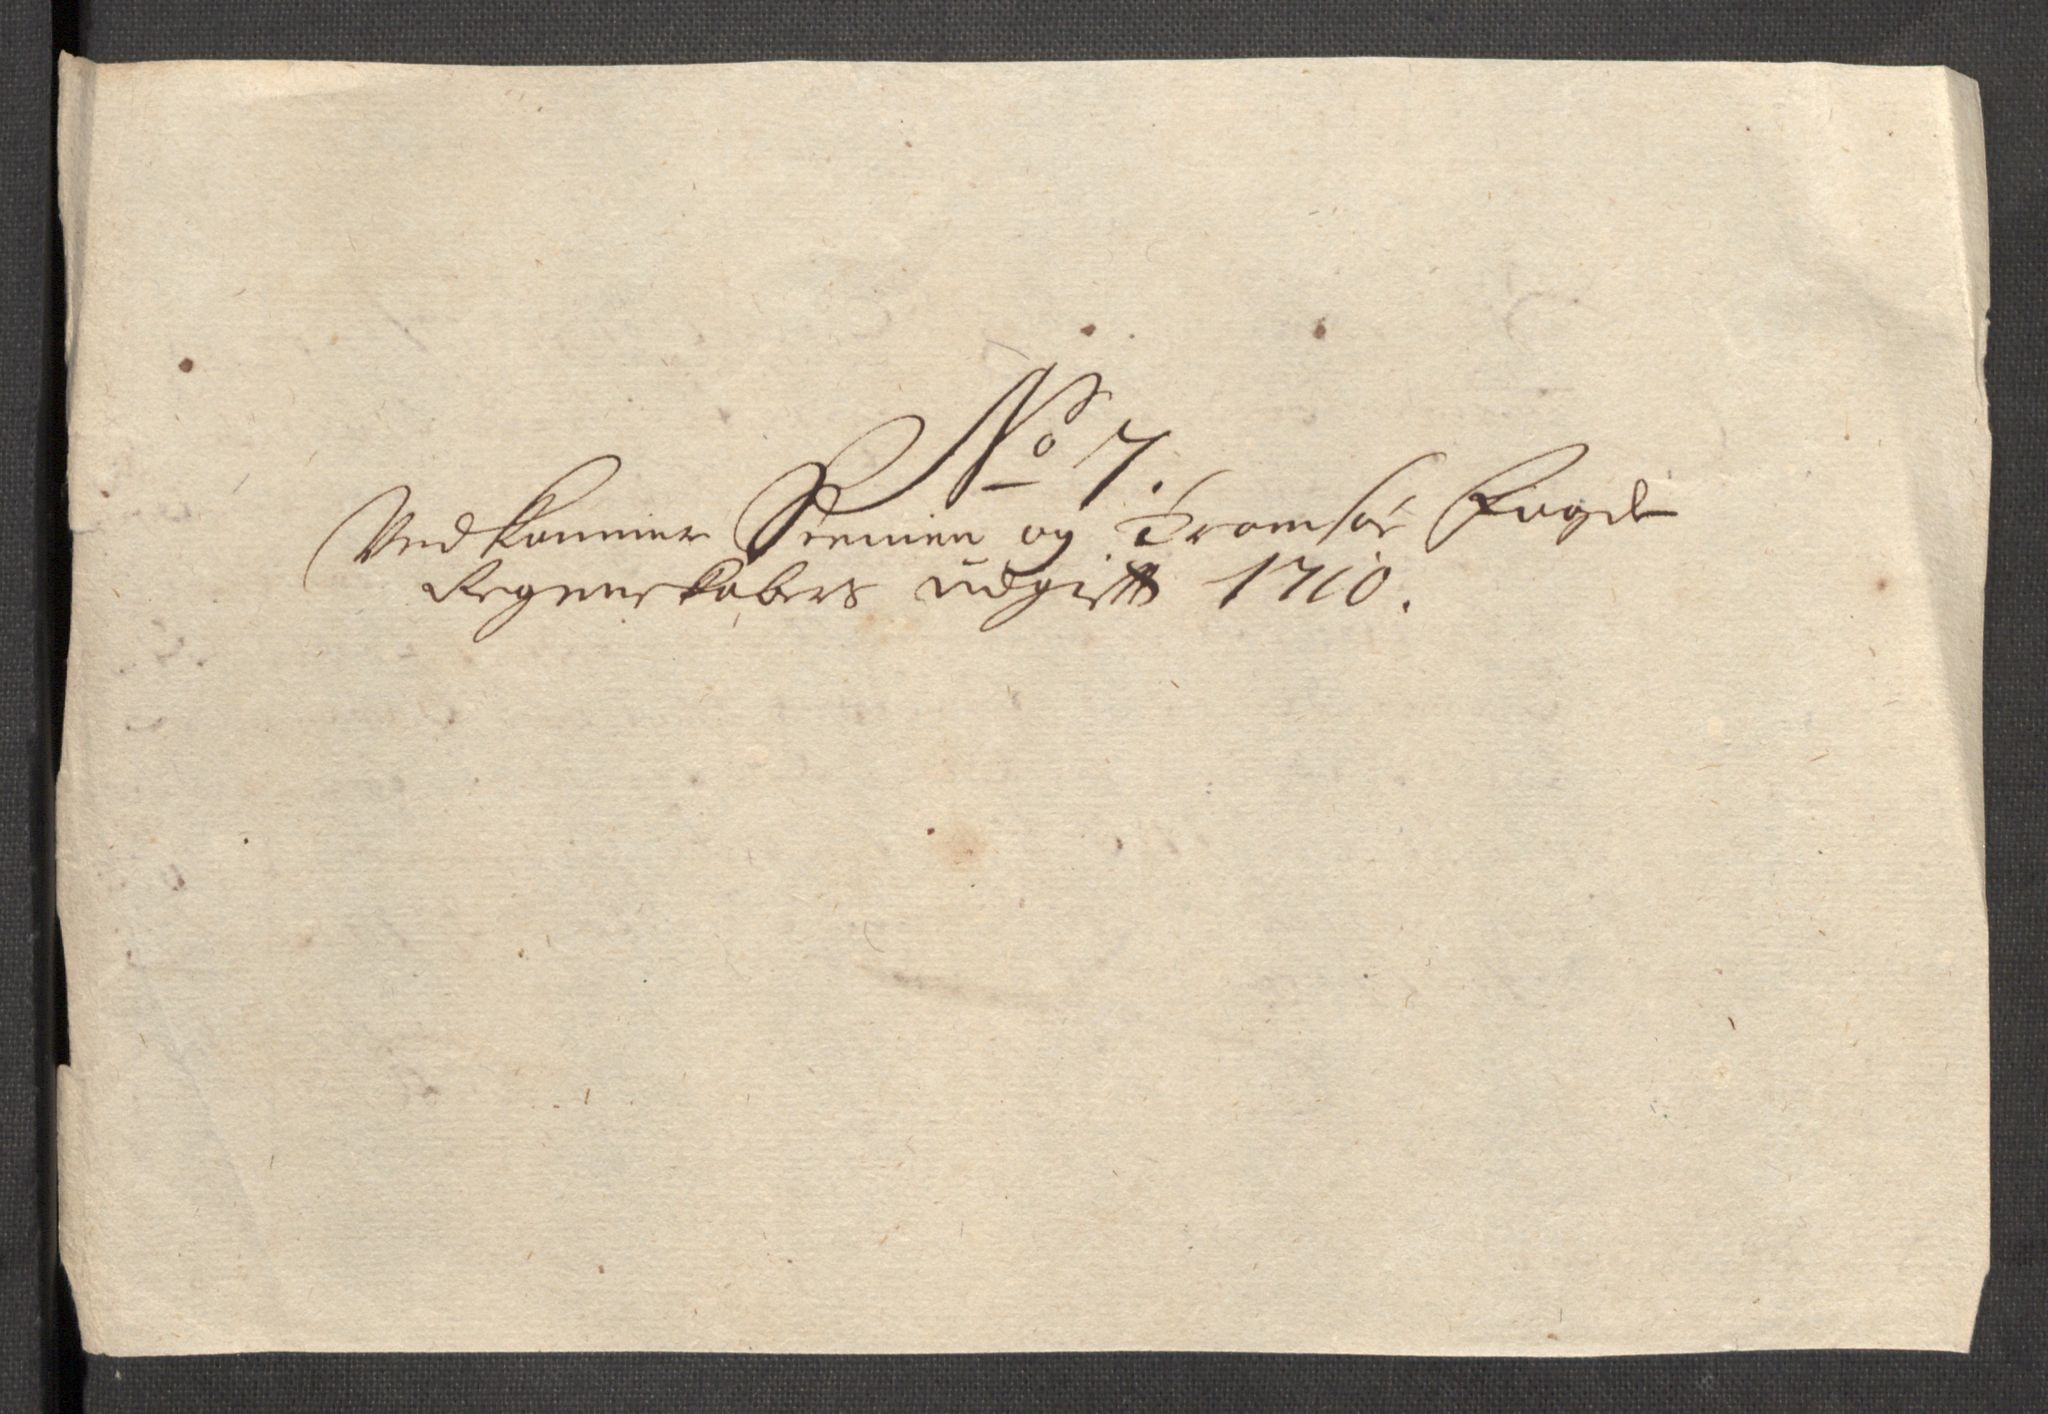 No 7.
Vedkommer Senniens og Tromsøe Fogde
Regenskabers udgifft 1710.